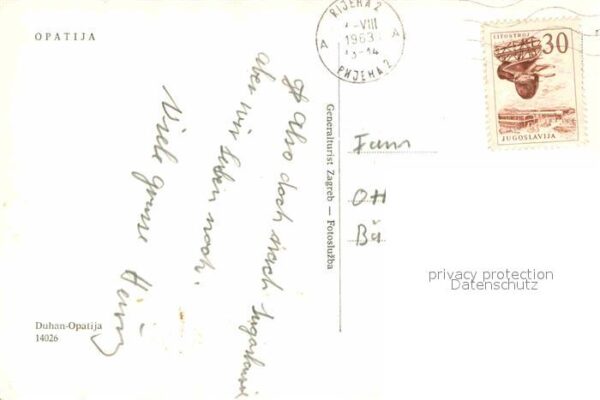 OPATIJA
RIJEKA 2
VIII
1963
13-14
A
A
РИЈЕКА 2
LITOSTROJ
30
JUGOSLAVIJA
also doch nach Jugoslawien
Aber wir leben noch.
Viele Grüsse Heinz
Generalturist Zagreb — Fotoslužba
Fam
OH
Bü
privacy protection
Datenschutz
Duhan-Opatija
14026